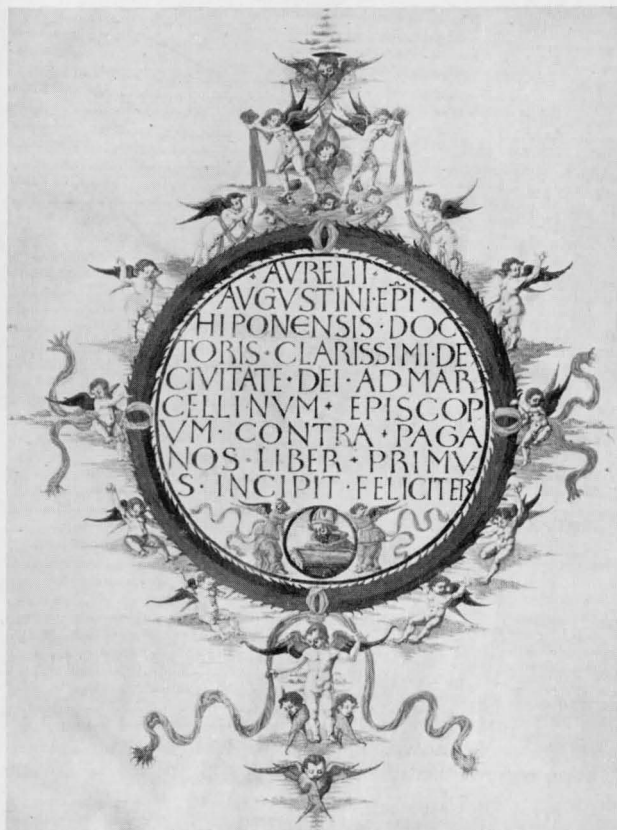 · AVRELII ·
AVGVSTINI · EPĨ ·
HIPONENSIS · DOC
TORIS · CLARISSIMI · DE
CIVITATE · DEI · AD MAR
CELLINVM · EPISCOP
VM · CONTRA · PAGA
NOS · LIBER · PRIMV
S · INCIPIT · FELICITER